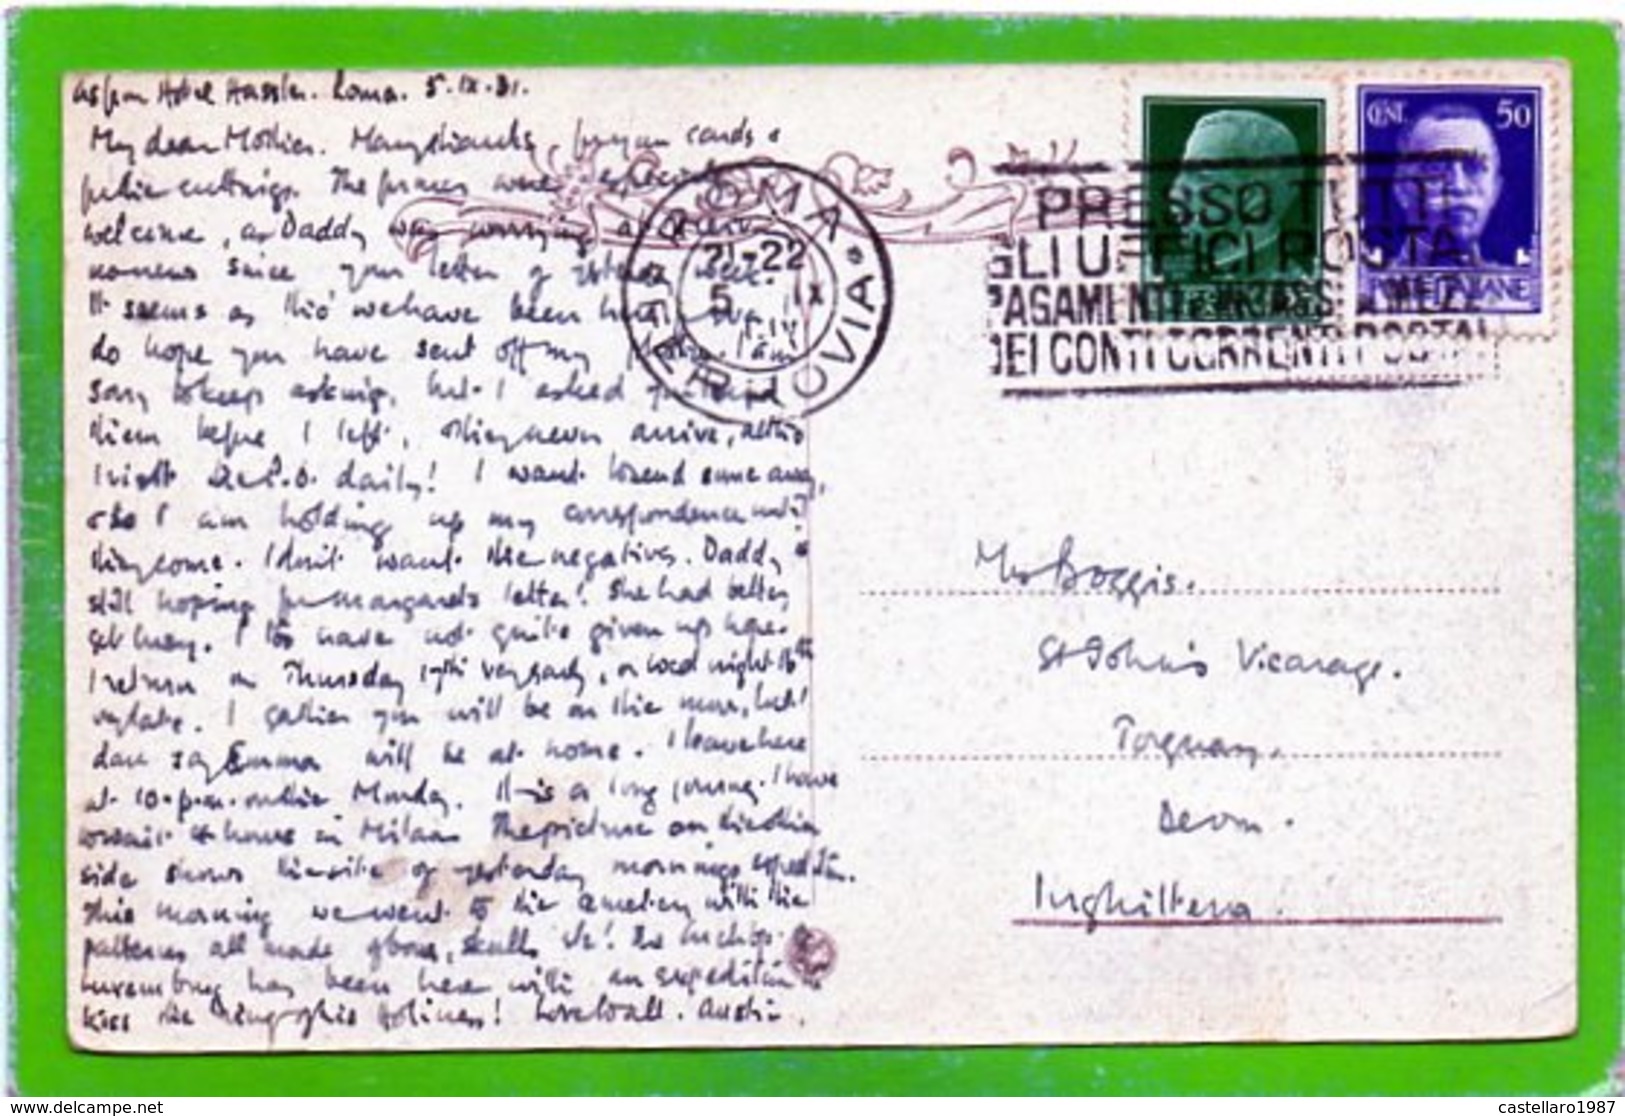 as from Hotel Hassler. Roma. 5.IX.31.
My dear Mother. Many thanks, for your cards &
public cuttings. The were especially
welcome, as Daddy was worrying
since your letter of yesterday week.
It seems as tho' we have been here I
do hope you have sent off my photos. I am
sorry to keep asking, but I asked you to send
them before I left, & they never arrive, altho'
I visit the P.O. daily! I want to send some away,
also I am holding up my correspondence until
they come. I don't want the negatives. Daddy is
still hoping for Margaret's letter! She had better
get busy. I too have not quite given up hope.
I return on Thursday 17th very early, or Wed night 16th
very late. I gather you will be on the moor, but I
dare say Emma will be at home. I leave here
at 10.p.m. on the Monday. It is a long journey. I have
to wait 4 hours in Milan. The picture on the other
side shows the site of yesterday morning's expedition.
This morning we went to the cemetery with the
patterns all made of bones, skulls etc! The Archbp. of
Luxembourg has been here with an expedition to
kiss the ring of his Holiness! Love to all. Austin.
ROMA
FERROVIA
21-22
5 IX
PRESSO TUTTI
GLI UFFICI POSTALI
PAGAMENTI
DEI CONTI CORRENTI POSTALI
CENT. 50
POSTE ITALIANE
Mrs Boggis.
St John's Vicarage.
Torquay,
Devon.
Inghilterra.
www.delcampe.net
castellaro1987